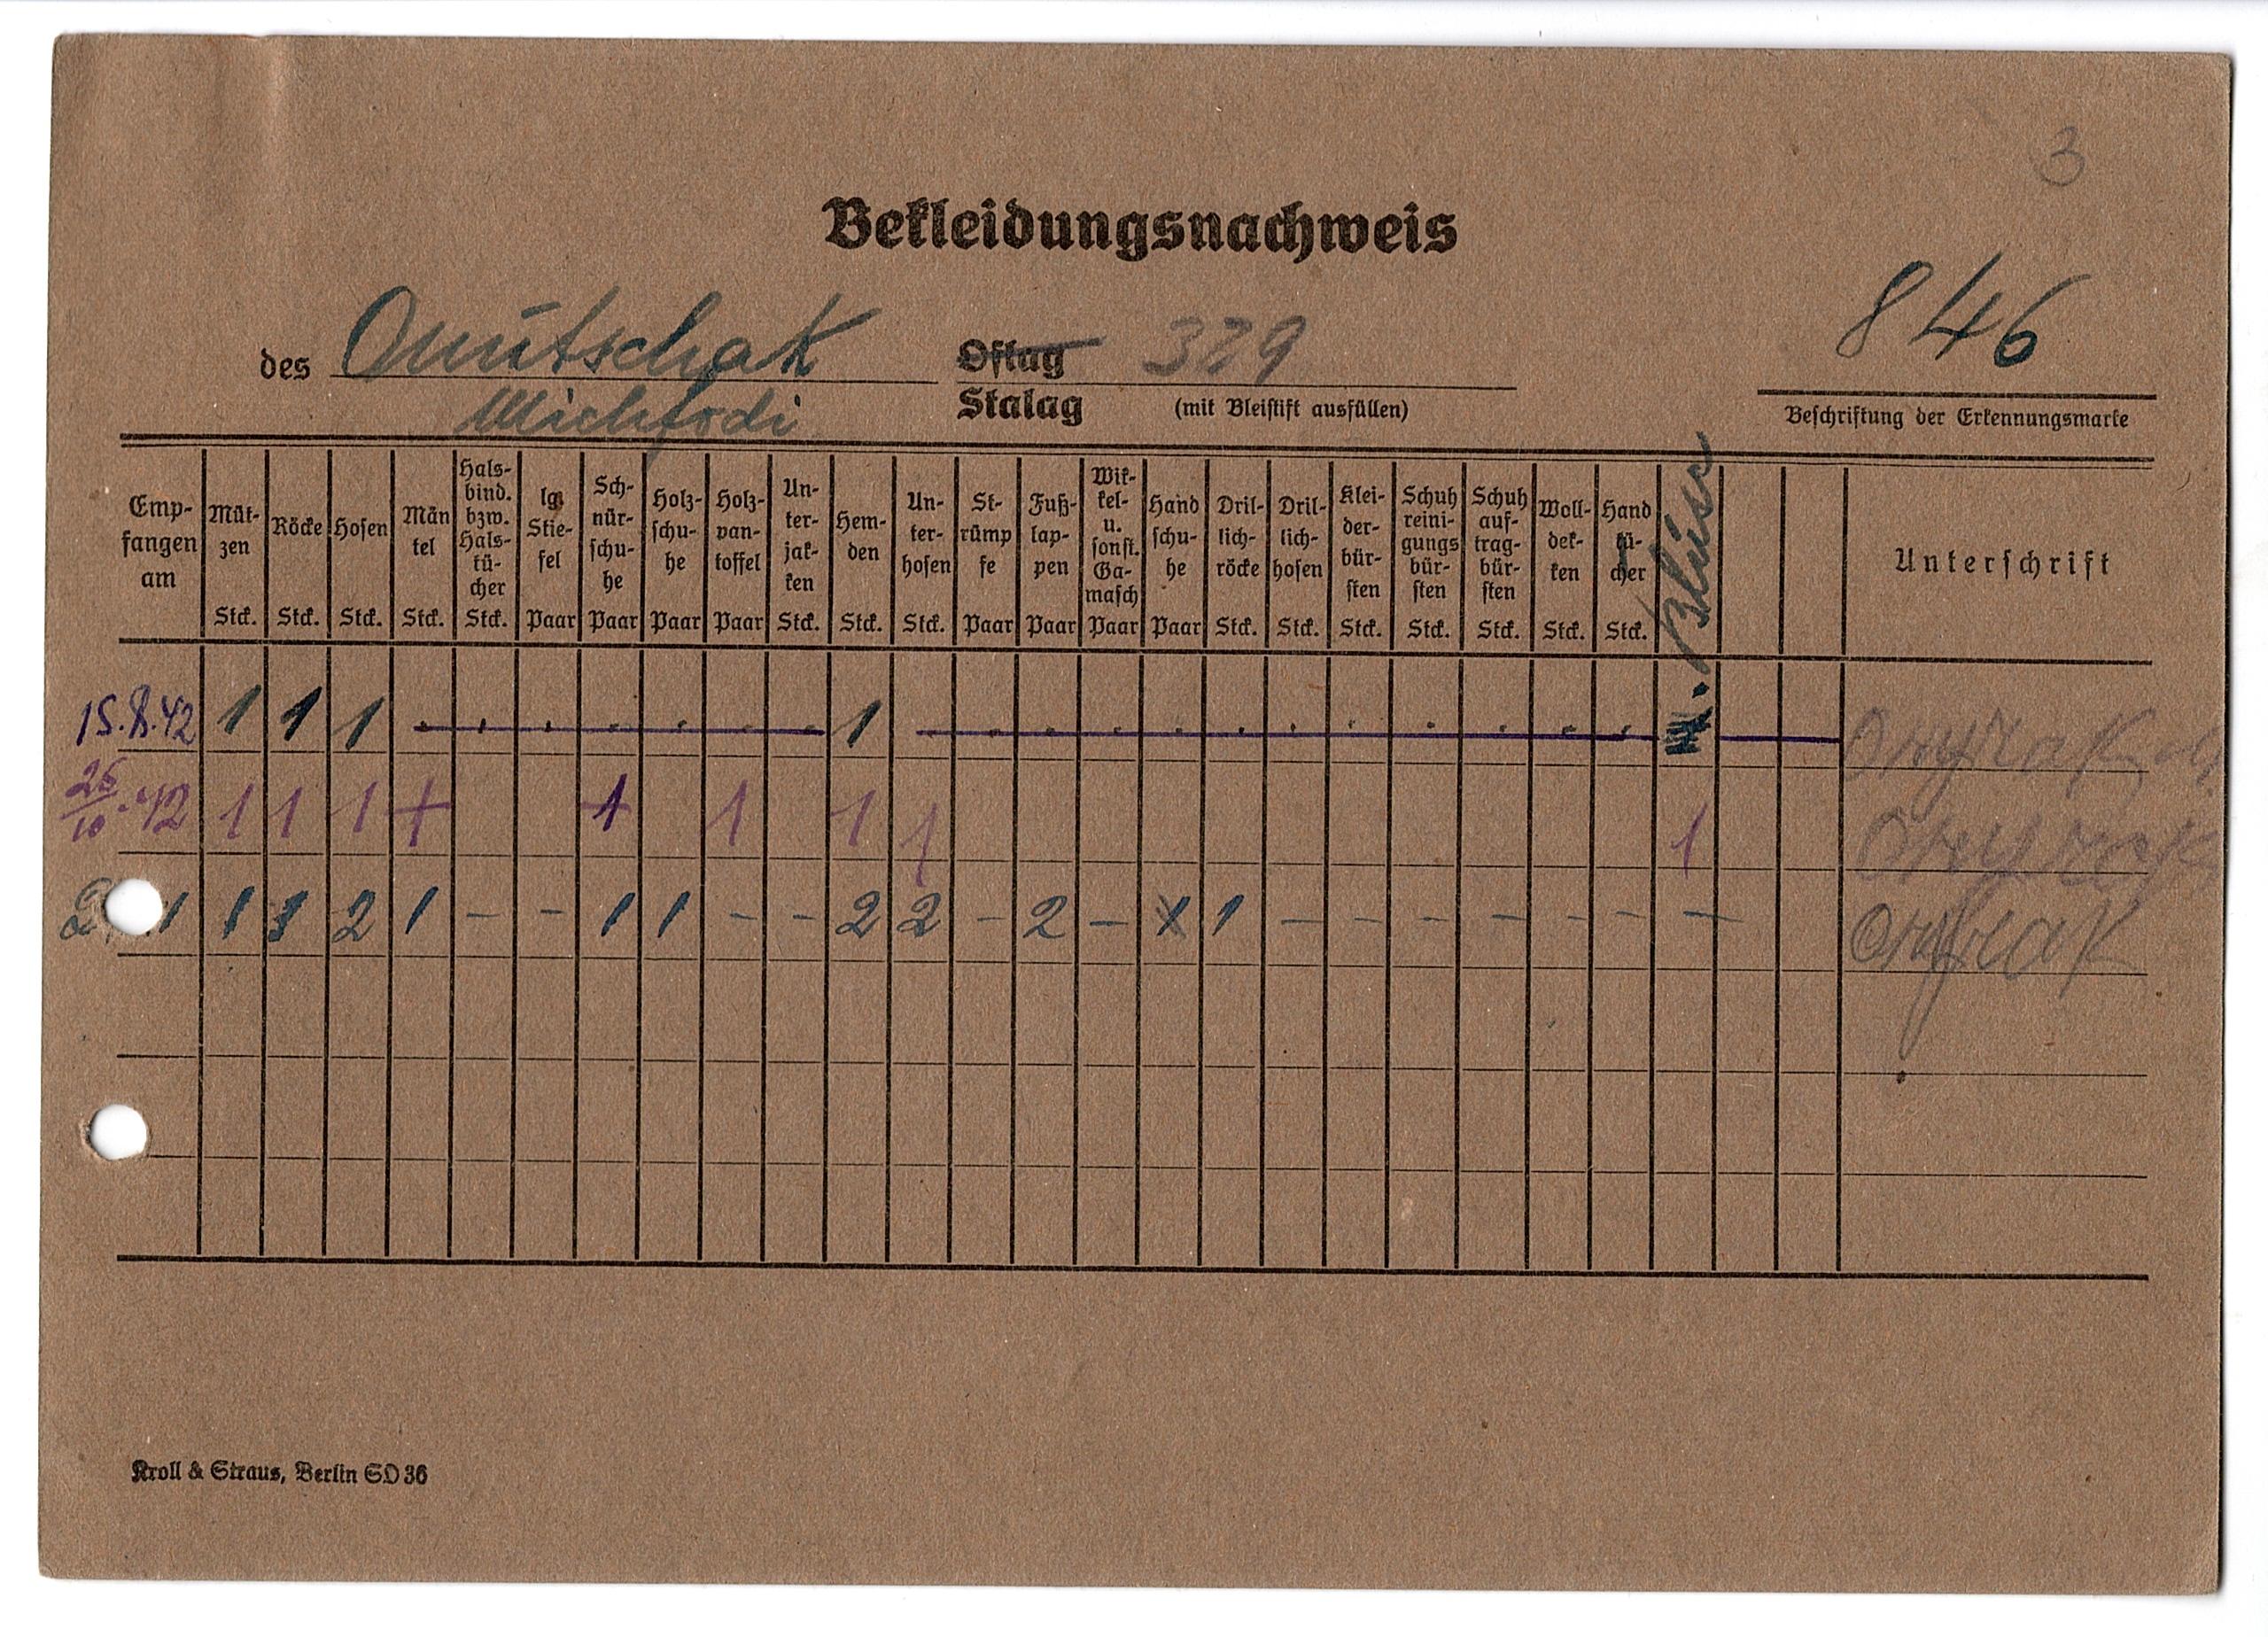 3
Bekleidungsnachweis
846
des Onutschak Oflag 329
Michfodi Stalag (mit Bleistift ausfüllen)
Beschriftung der Erkennungsmarke
Emp-fangen am
Müt-zen Stck.
Röcke Stck.
Hosen Stck.
Män tel Stck.
Hals-bind. bzw. Hals-tü-cher Stck.
lg. Stie-fel Paar
Sch-nür-schu-he Paar
Holz-schu-he Paar
Holz-pan-toffel Paar
Un-ter-jak-ken Stck.
Hem-den Stck.
Un-ter-hosen Stck.
St-rümp fe Paar
Fuß-lap-pen Paar
Wik-kel-u. sonst. Ga-masch Paar
Hand schu-he Paar
Dril-lich-röcke Stck.
Dril-lich-hosen Stck.
Klei-der-bür-sten Stck.
Schuh reini-gungs bür-sten Stck.
Schuh auf-trag-bür-sten Stck.
Woll-dek-ken Stck.
Hand tü-cher Stck.
Bluse
Unterschrift
15.8.42 1 1 1 1
26/10.42 1 1 1 + 1 1 1 1 1
1 1 2 1 – – 1 1 – – 2 2 – 2 – 1 – – – – – – –
Kroll & Straus, Berlin SO 36